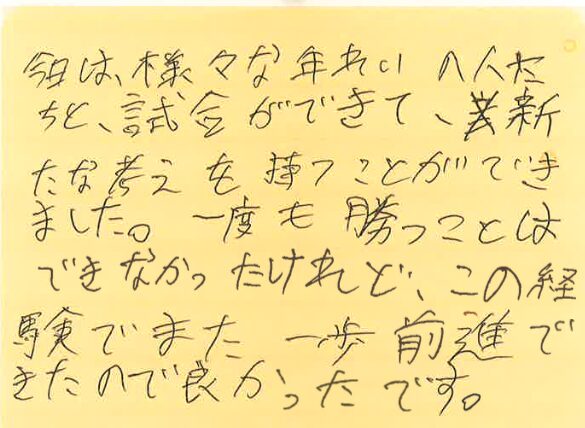 今日は、様々な年れいの人た
ちと、試合ができて、新
たな考えを持つことができ
ました。一度も勝つことは
できなかったけれど、この経
験でまた一歩前進で
きたので良かったです。